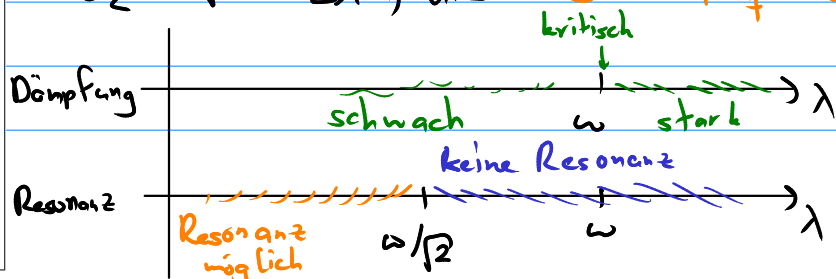 kritisch
Dämpfung
λ
schwach
ω
stark
keine Resonanz
Resonanz
λ
Resonanz
möglich
ω/√2
ω